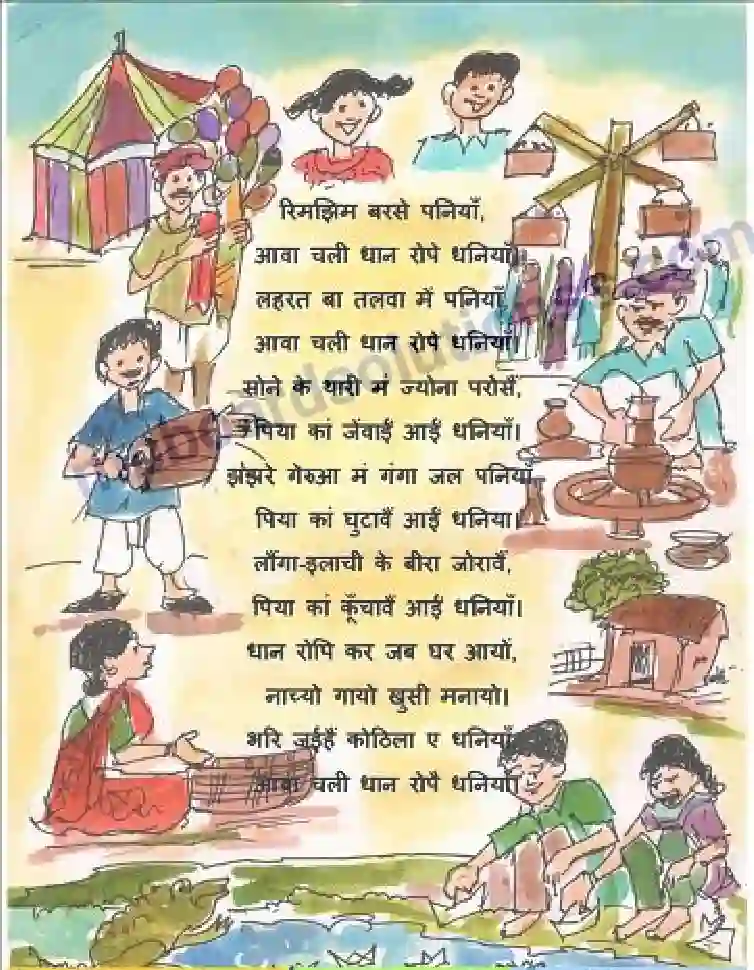 रिमझिम बरसे पनियाँ,
आवा चली धान रोपे धनियाँ।
लहरत बा तलवा में पनियाँ
आवा चली धान रोपे धनियाँ।
सोने के थारी मं ज्योना परोसैं,
पिया कां जेंवाईं आईं धनियाँ।
झंझरे गेरुआ मं गंगा जल पनियाँ
पिया कां घुटावैं आईं धनिया।
लौंगा-इलाची के बीरा जोरावैं,
पिया कां कूँचावैं आईं धनियाँ।
धान रोपि कर जब घर आयों,
नाच्यो गायो खुसी मनायो।
भरि जईहैं कोठिला ए धनियाँ
आवा चली धान रोपै धनियाँ।